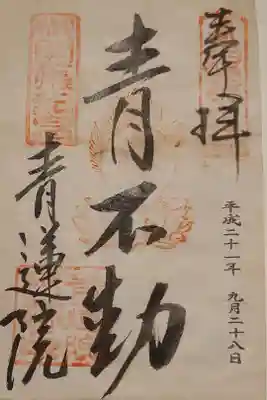 奉拝
平成二十一年 九月二十八日
青不動
青蓮院